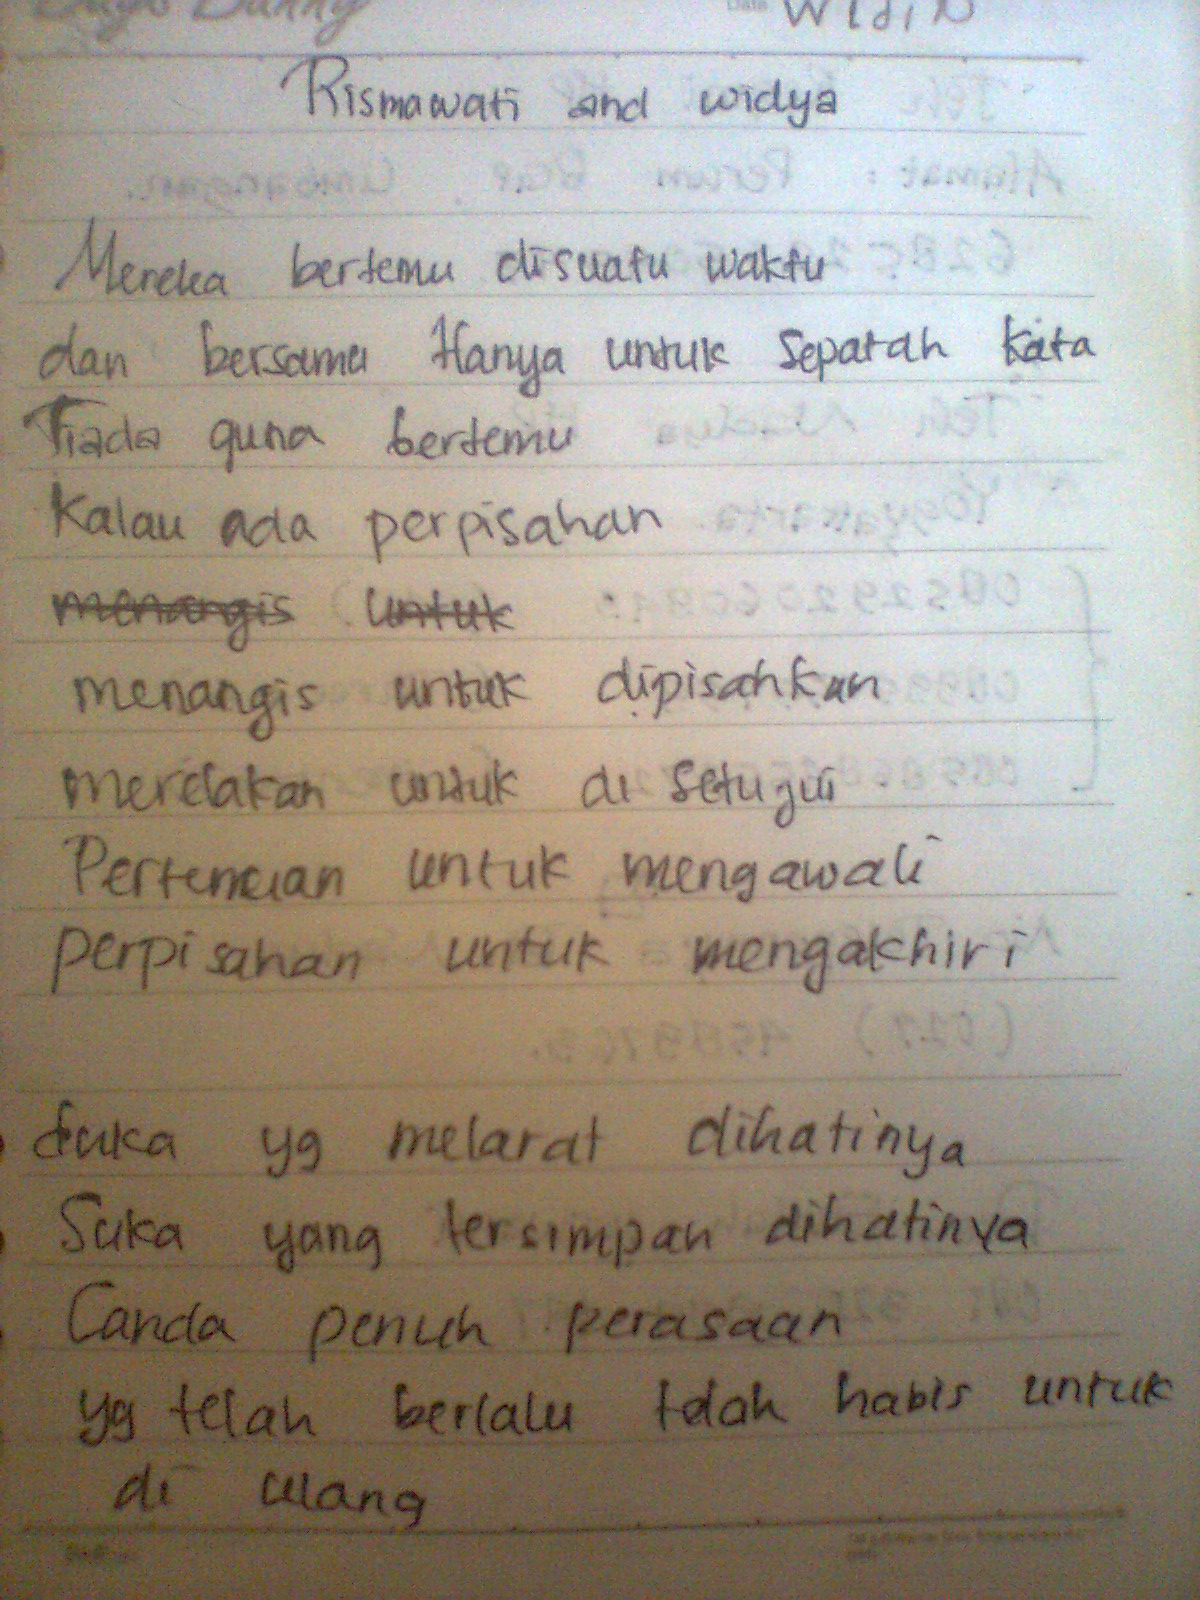 Rismawati and widya
Mereka bertemu disuatu waktu
dan bersama Hanya untuk Sepatah Kata
Tiada guna bertemu
Kalau ada perpisahan
menangis untuk
menangis untuk dipisahkan
merelakan untuk di Setujui
Pertemuan untuk mengawali
perpisahan untuk mengakhiri
duka yg melarat dihatinya
Suka yang tersimpan dihatinya
Canda penuh perasaan
yg telah berlalu telah habis untuk
di ulang